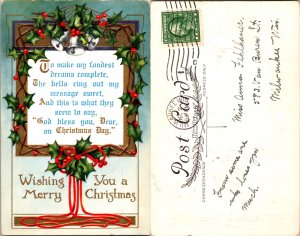 To make my fondest
dreams complete,
The bells ring out my
message sweet,
And this is what they
seem to say,
"God bless you, Dear,
on Christmas Day."
Wishing You a
Merry Christmas
Post Card
Miss Anna
Van Buren St
Milwaukee Wis.
From some one
who loves you
much.